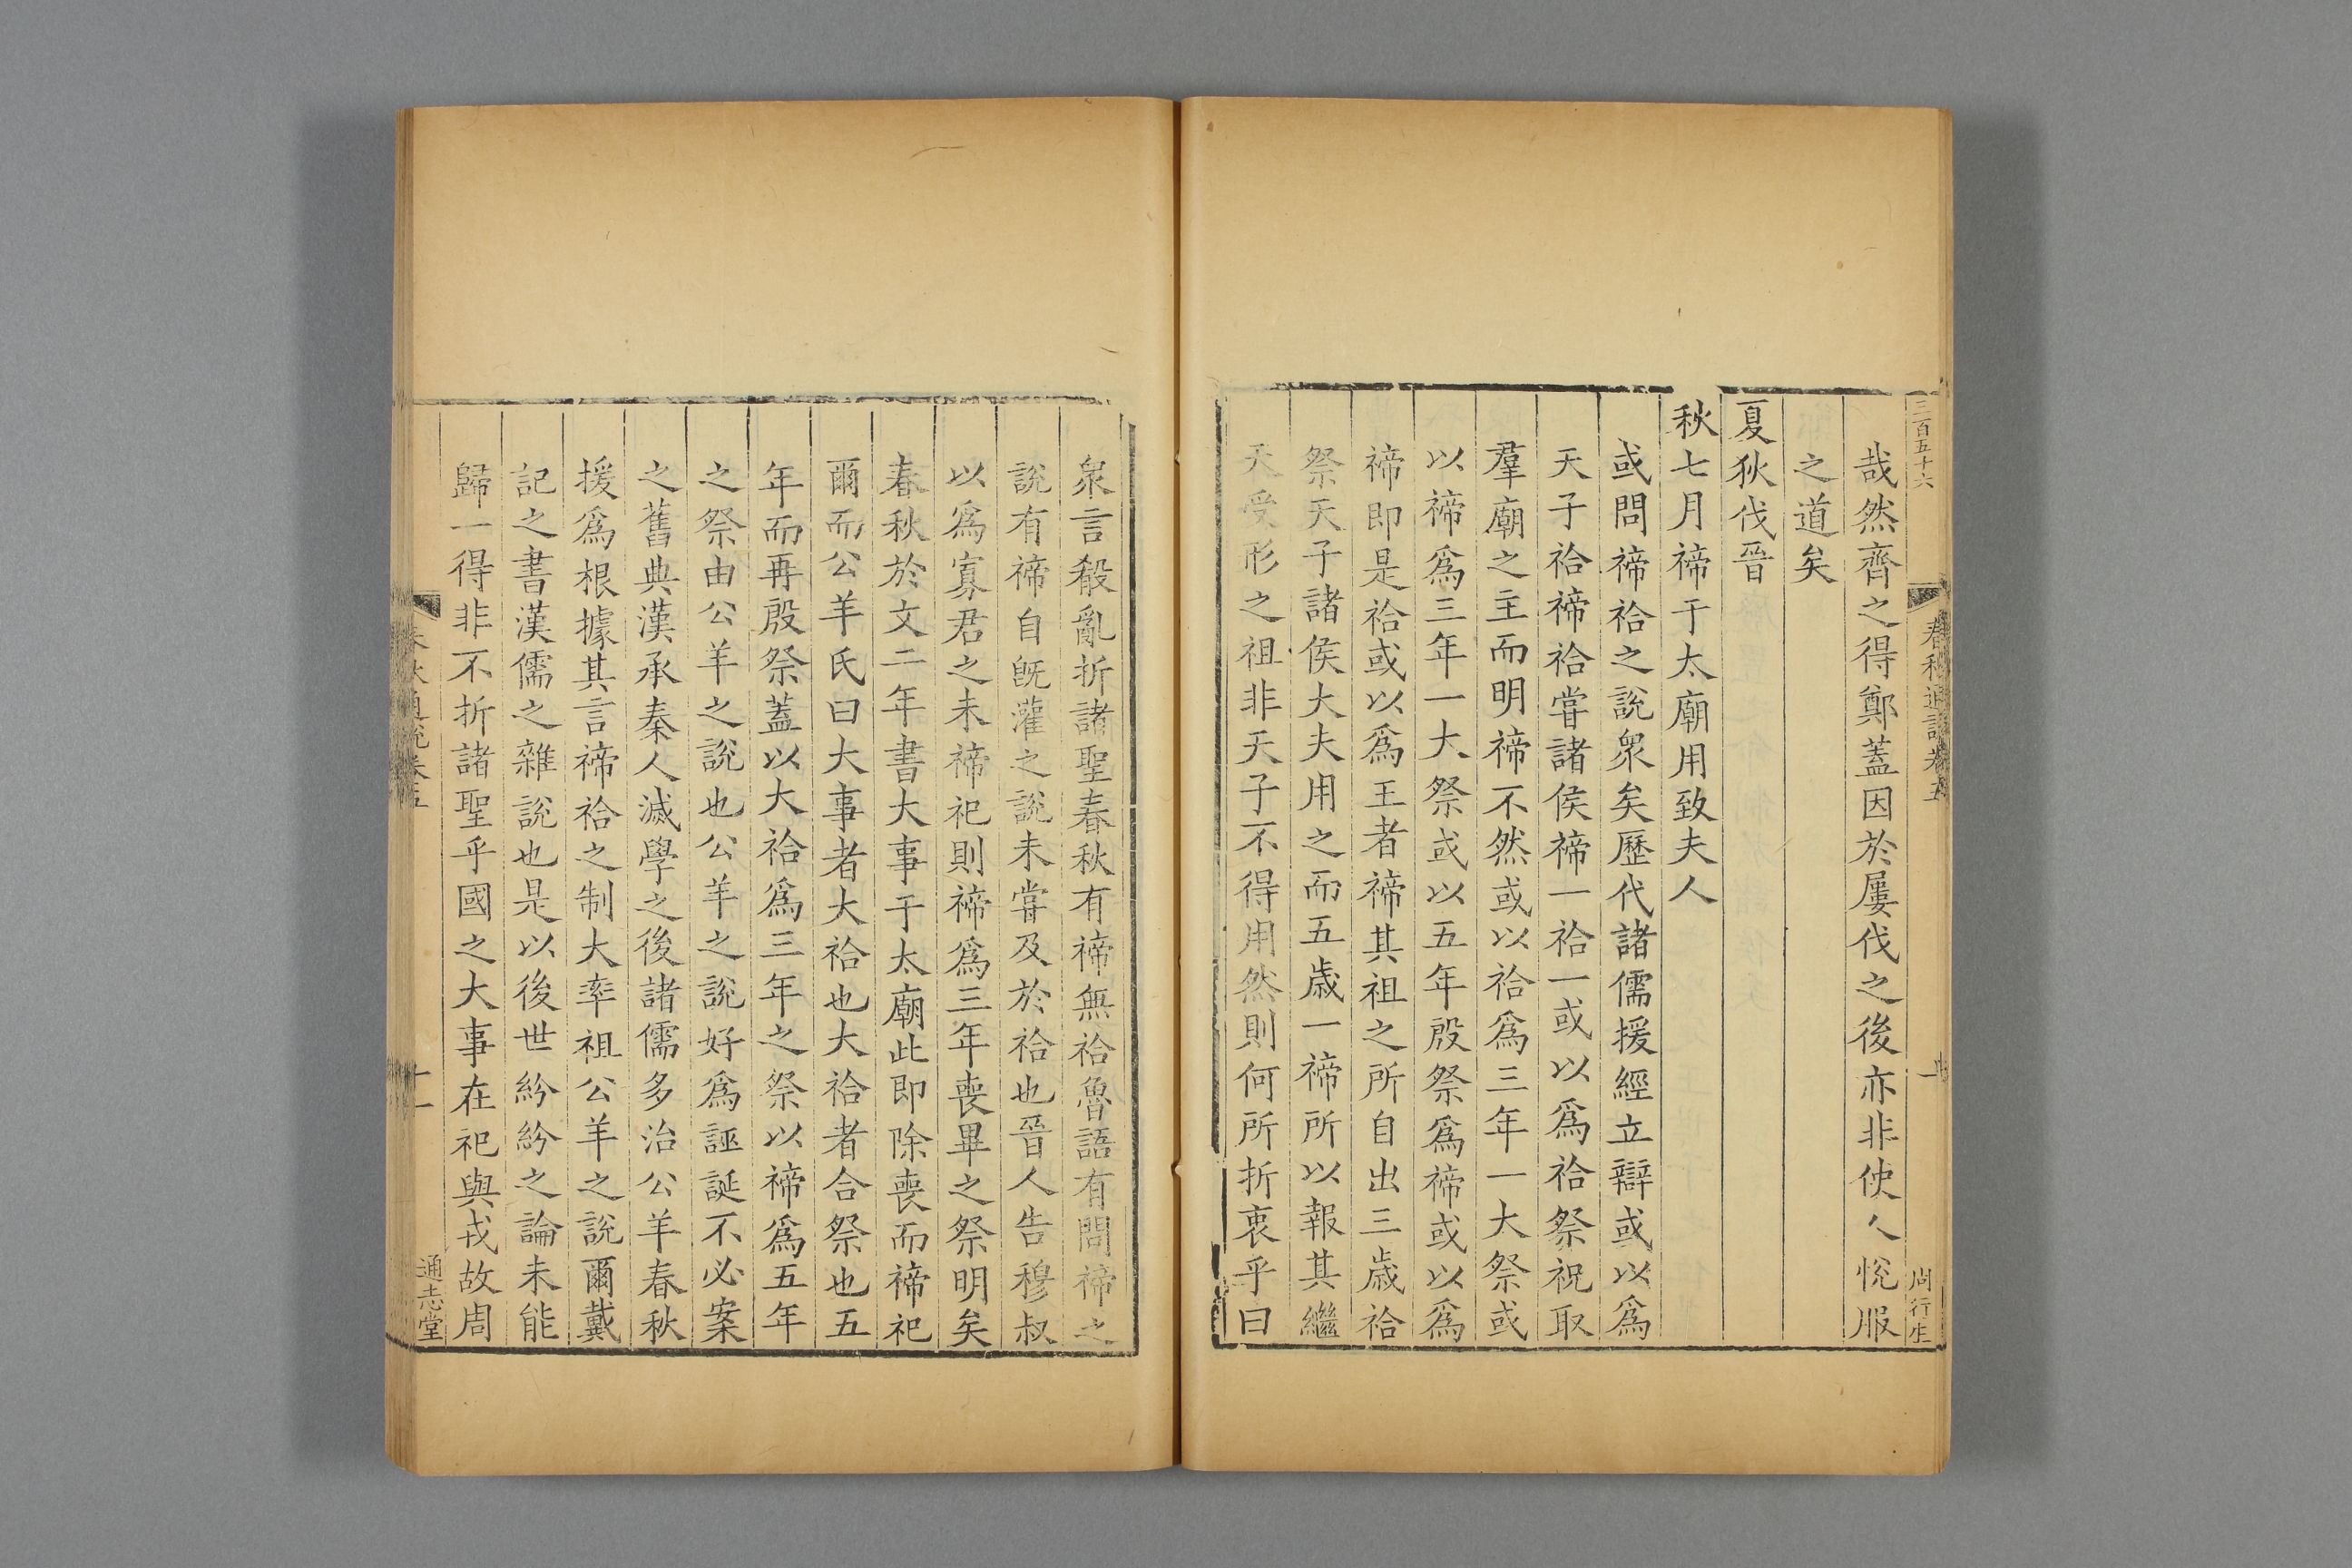 三百五十六
春秋通說卷五
周行生
哉然齊之得鄭蓋因於屢伐之後亦非使人悅服
之道矣
夏狄伐晉
秋七月禘于太廟用致夫人
或問禘祫之說眾矣歷代諸儒援經立辯或以為
天子祫禘祫嘗諸侯禘一祫一或以為祫祭祝取
羣廟之主而明禘不然或以祫為三年一大祭或
以禘為三年一大祭或以五年殷祭為禘或以為
禘即是祫或以為王者禘其祖之所自出三歲祫
祭天子諸侯大夫用之而五歲一禘所以報其繼
天受形之祖非天子不得用然則何所折衷乎曰
眾言殽亂折諸聖春秋有禘無祫魯語有問禘之
說有禘自旣灌之說未嘗及於祫也晉人告穆叔
以為寡君之未禘祀則禘為三年喪畢之祭明矣
春秋於文二年書大事于太廟此即除喪而禘祀
爾而公羊氏曰大事者大祫也大祫者合祭也五
年而再殷祭蓋以大祫為三年之祭以禘為五年
之祭由公羊之說也公羊之說好為誣誕不必案
之舊典漢承秦人滅學之後諸儒多治公羊春秋
援為根據其言禘祫之制大率祖公羊之說爾戴
記之書漢儒之雜說也是以後世紛紛之論未能
歸一得非不折諸聖乎國之大事在祀與戎故周
春秋通說卷五
十一
通志堂